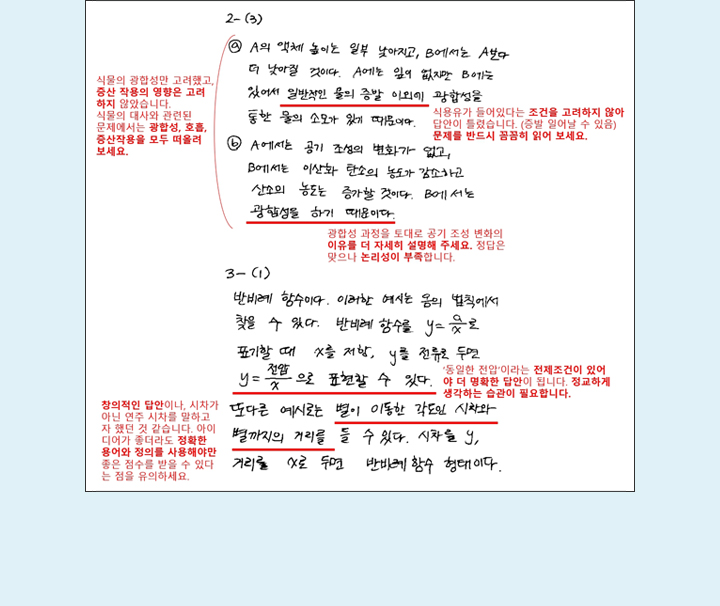 2-(3)
ⓐ A의 액체 높이는 일부 낮아지고, B에서는 A보다
더 낮아질 것이다. A에는 잎이 없지만 B에는
있어서 일반적인 물의 증발 이외에 광합성을
통한 물의 소모가 있기 때문이다.
식물의 광합성만 고려했고,
증산 작용의 영향은 고려
하지 않았습니다.
식물의 대사와 관련된
문제에서는 광합성, 호흡,
증산작용을 모두 떠올려
보세요.
식용유가 들어있다는 조건을 고려하지 않아
답안이 틀렸습니다. (증발 일어날 수 있음)
문제를 반드시 꼼꼼히 읽어 보세요.
ⓑ A에서는 공기 조성의 변화가 없고,
B에서는 이산화 탄소의 농도가 감소하고
산소의 농도는 증가할 것이다. B에서는
광합성을 하기 때문이다.
광합성 과정을 토대로 공기 조성 변화의
이유를 더 자세히 설명해 주세요. 정답은
맞으나 논리성이 부족합니다.
3-(1)
반비례 함수이다. 이러한 예시는 옴의 법칙에서
찾을 수 있다. 반비례 함수를 y=a/x로
표기할 때 x를 저항, y를 전류로 두면
y=전압/x으로 표현할 수 있다.
'동일한 전압'이라는 전제조건이 있어
야 더 명확한 답안이 됩니다. 정교하게
생각하는 습관이 필요합니다.
또다른 예시로는 별이 이동한 각도인 시차와
별까지의 거리를 들 수 있다. 시차를 y,
거리를 x로 두면 반비례 함수 형태이다.
창의적인 답안이나, 시차가
아닌 연주 시차를 말하고
자 했던 것 같습니다. 아이
디어가 좋더라도 정확한
용어와 정의를 사용해야만
좋은 점수를 받을 수 있다
는 점을 유의하세요.